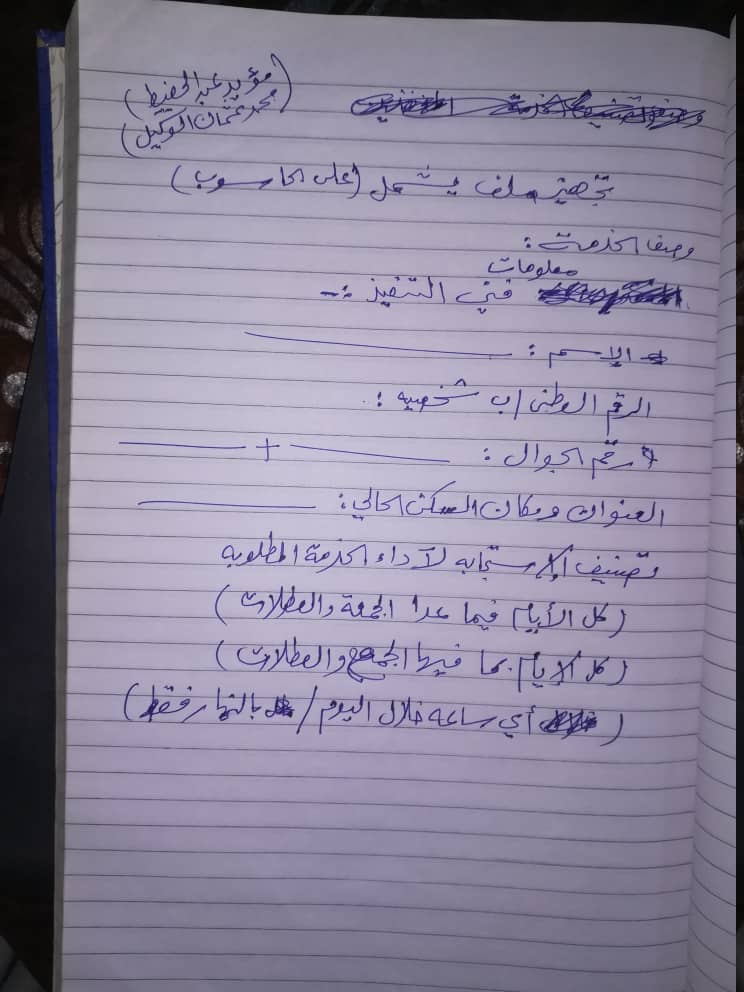 (مؤيد عبد الحفيظ)
(محمد عثمان الوكيل)
تجهيز ملف يشمل (على الحاسوب)
وصف الخدمة:
معلومات
فني التنفيذ :-
الاسم :
الرقم الوطني / ب شخصيه :
رقم الجوال : +
العنوان ومكان السكن الحالي:
وتصنيف الإستجابه لآداء الخدمة المطلوبه
(كل الأيام فيما عدا الجمعة والعطلات)
(كل الايام بما فيها الجمع والعطلات)
(أي ساعه خلال اليوم / بالنهار فقط)